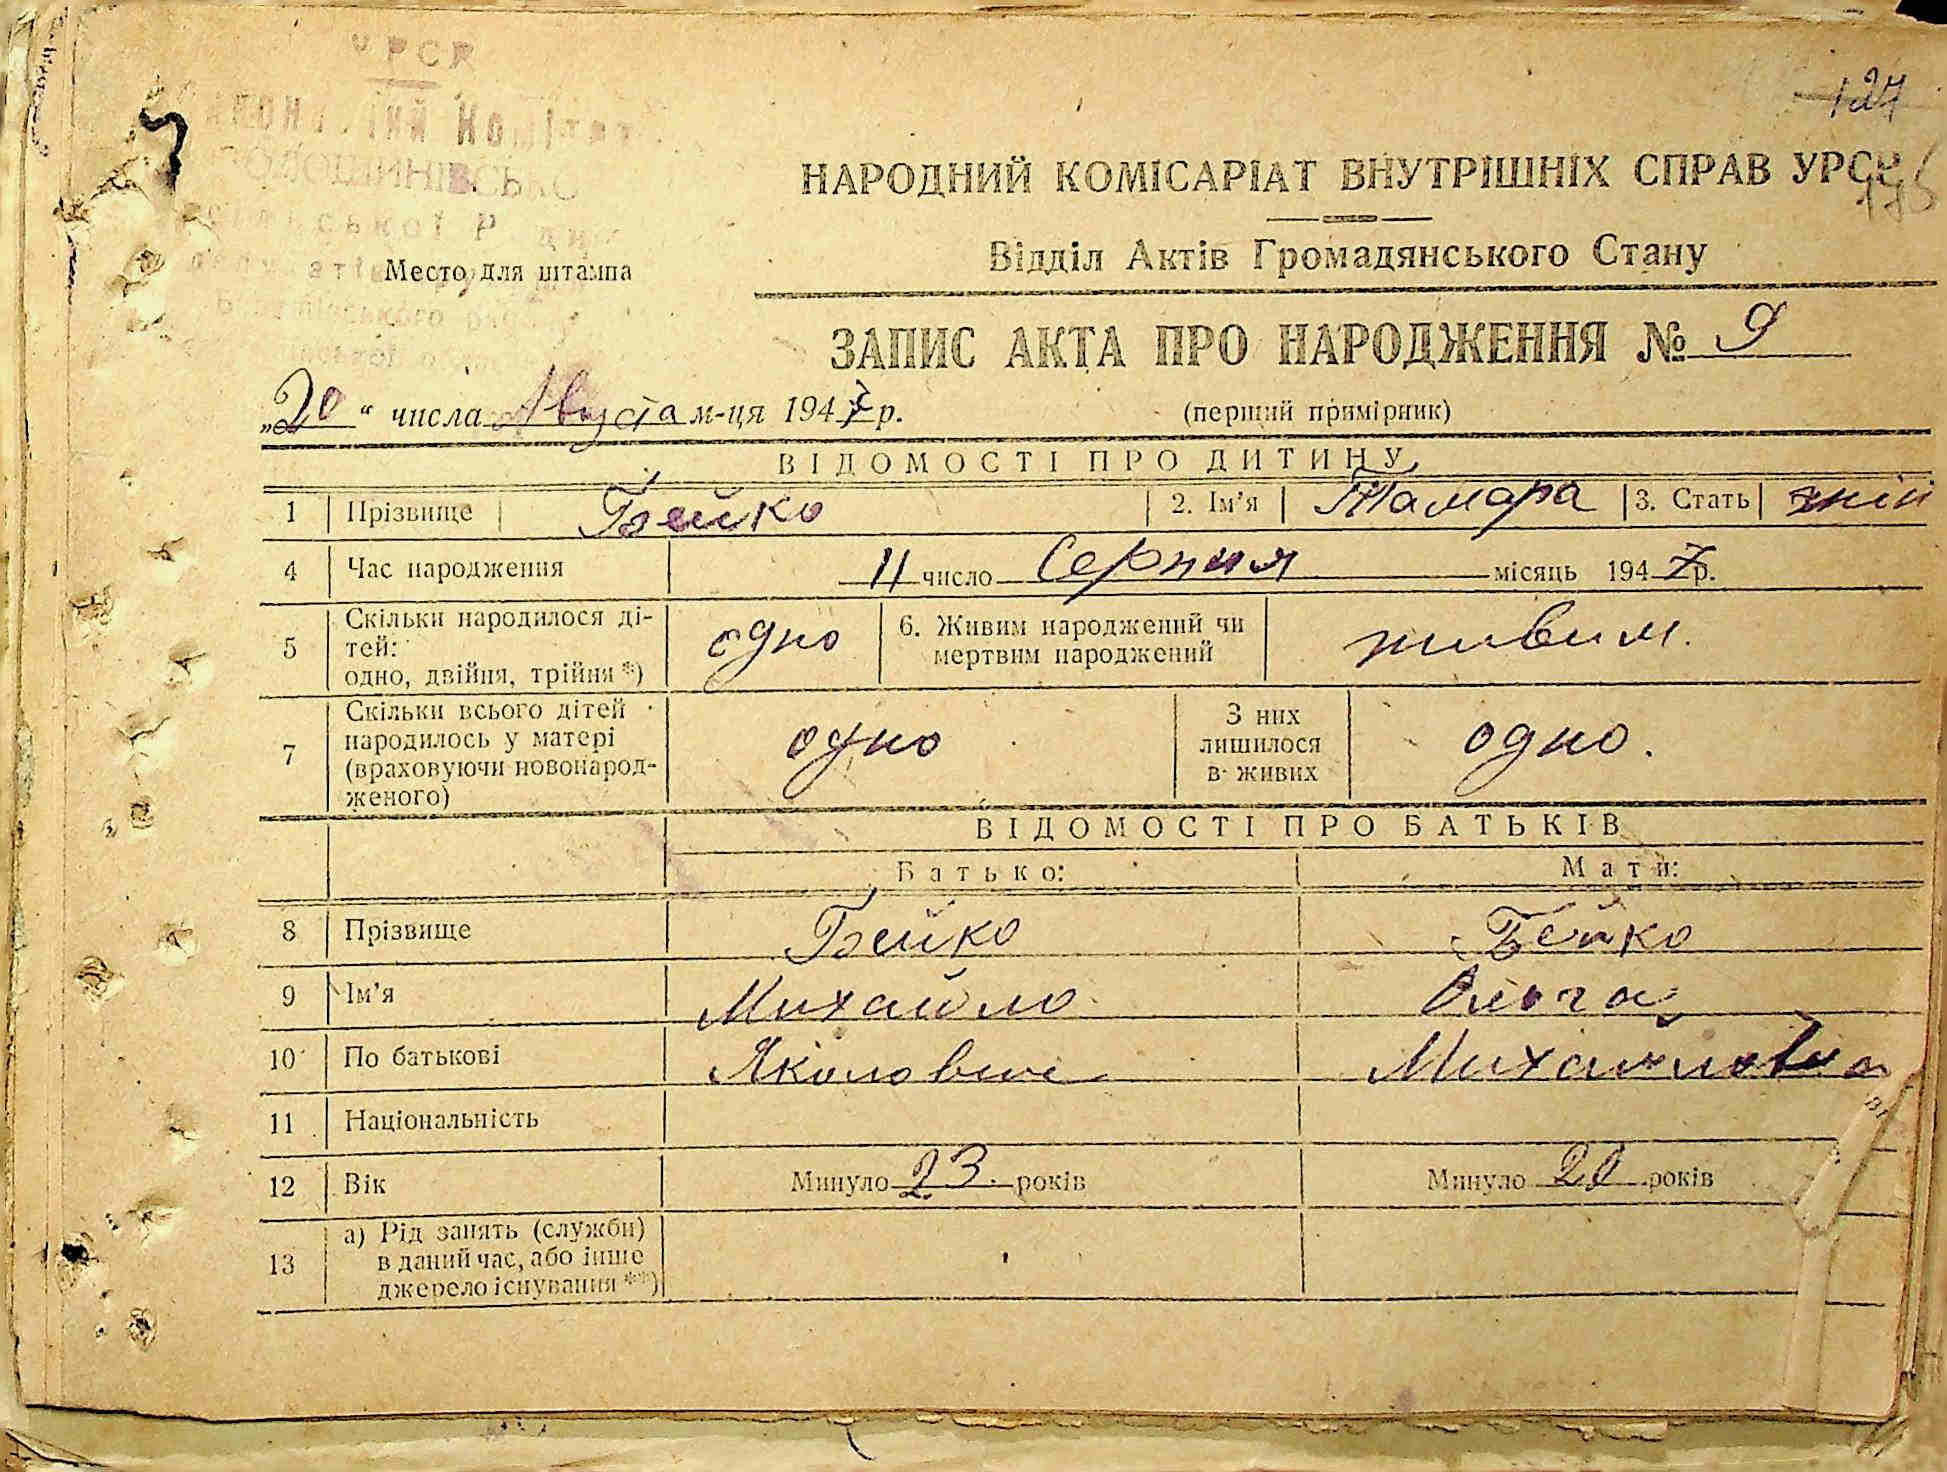 УРСР
127
НАРОДНИЙ КОМІСАРІАТ ВНУТРІШНІХ СПРАВ УРСР
Відділ Актів Громадянського Стану
Место для штампа
ЗАПИС АКТА ПРО НАРОДЖЕННЯ № 9
„20“ числа Августа м-ця 1947 р.
(перший примірник)
ВІДОМОСТІ ПРО ДИТИНУ
1 Прізвище Бейко 2. Ім'я Тамара 3. Стать жін
4 Час народження 11 число Серпня місяць 1947 р.
5 Скільки народилося ді-
тей:
одно, двійня, трійня *) одно 6. Живим народжений чи
мертвим народжений живим.
7 Скільки всього дітей
народилось у матері
(враховуючи новонарод-
женого) одно З них
лишилося
в живих одно.
ВІДОМОСТІ ПРО БАТЬКІВ
Батько: Мати:
8 Прізвище Бейко Бейко
9 Ім'я Михайло Ольга
10 По батькові Михайловна
11 Національність
12 Вік Минуло 23 років Минуло 20 років
13 а) Рід занять (служби)
в даний час, або інше
джерело існування **)